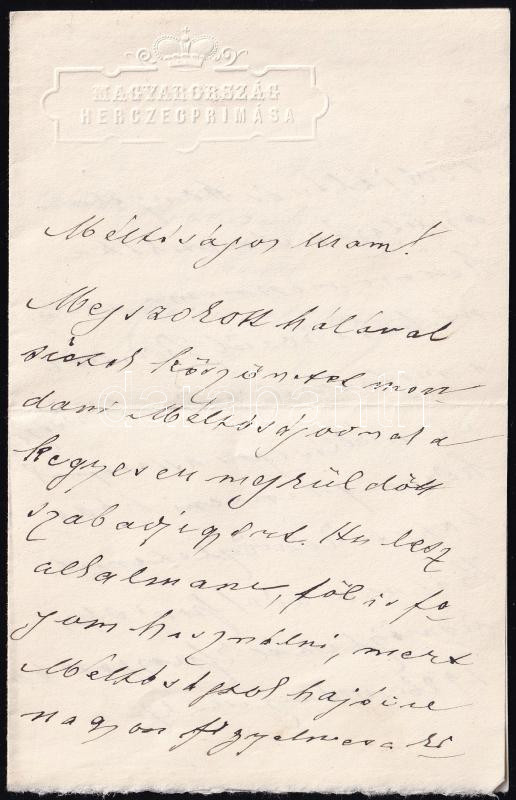 MAGYARORSZÁG
HERCZEGPRIMÁSA
Méltóságos Uram!
Megszokott hálával
sietek köszönetet mon-
dani Méltóságodnak a
kegyesen megküldött
szabadjegyért. Ha lesz
alkalmam, föl is fo-
gom használni, mert
Méltóságtok hajóin
nagyon figyelmes a ki